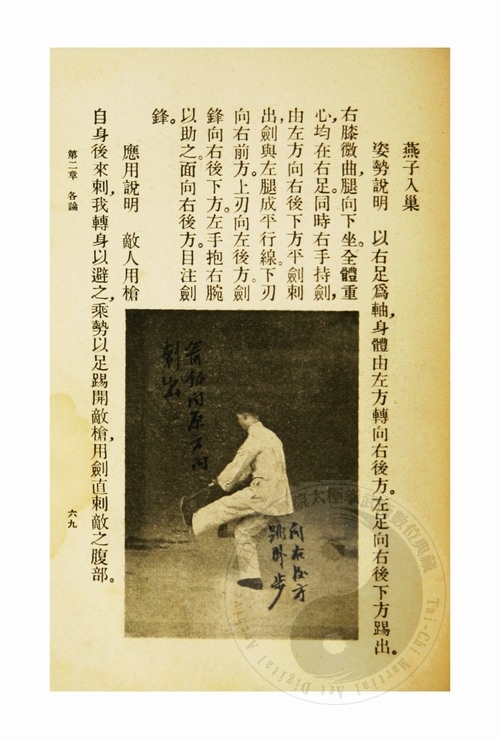 燕子入巢
姿勢說明　以右足爲軸,身體由左方轉向右後方。左足向右後下方踢出。
右膝微曲,腿向下坐。全體重
心均在右足。同時右手持劍,
由左方向右後下方平劍刺
出,劍與左腿成平行線。下刃
向右前方。上刃向左後方。劍
鋒向右後下方。左手抱右腕
以助之。面向右後方。目注劍
鋒。
刺出
向右後方
應用說明　敵人用槍
自身後來刺,我轉身以避之,乘勢以足踢開敵槍,用劍直刺敵之腹部。
第二章 各論
六九
數位典藏
Tai-Chi Martial Art Digital